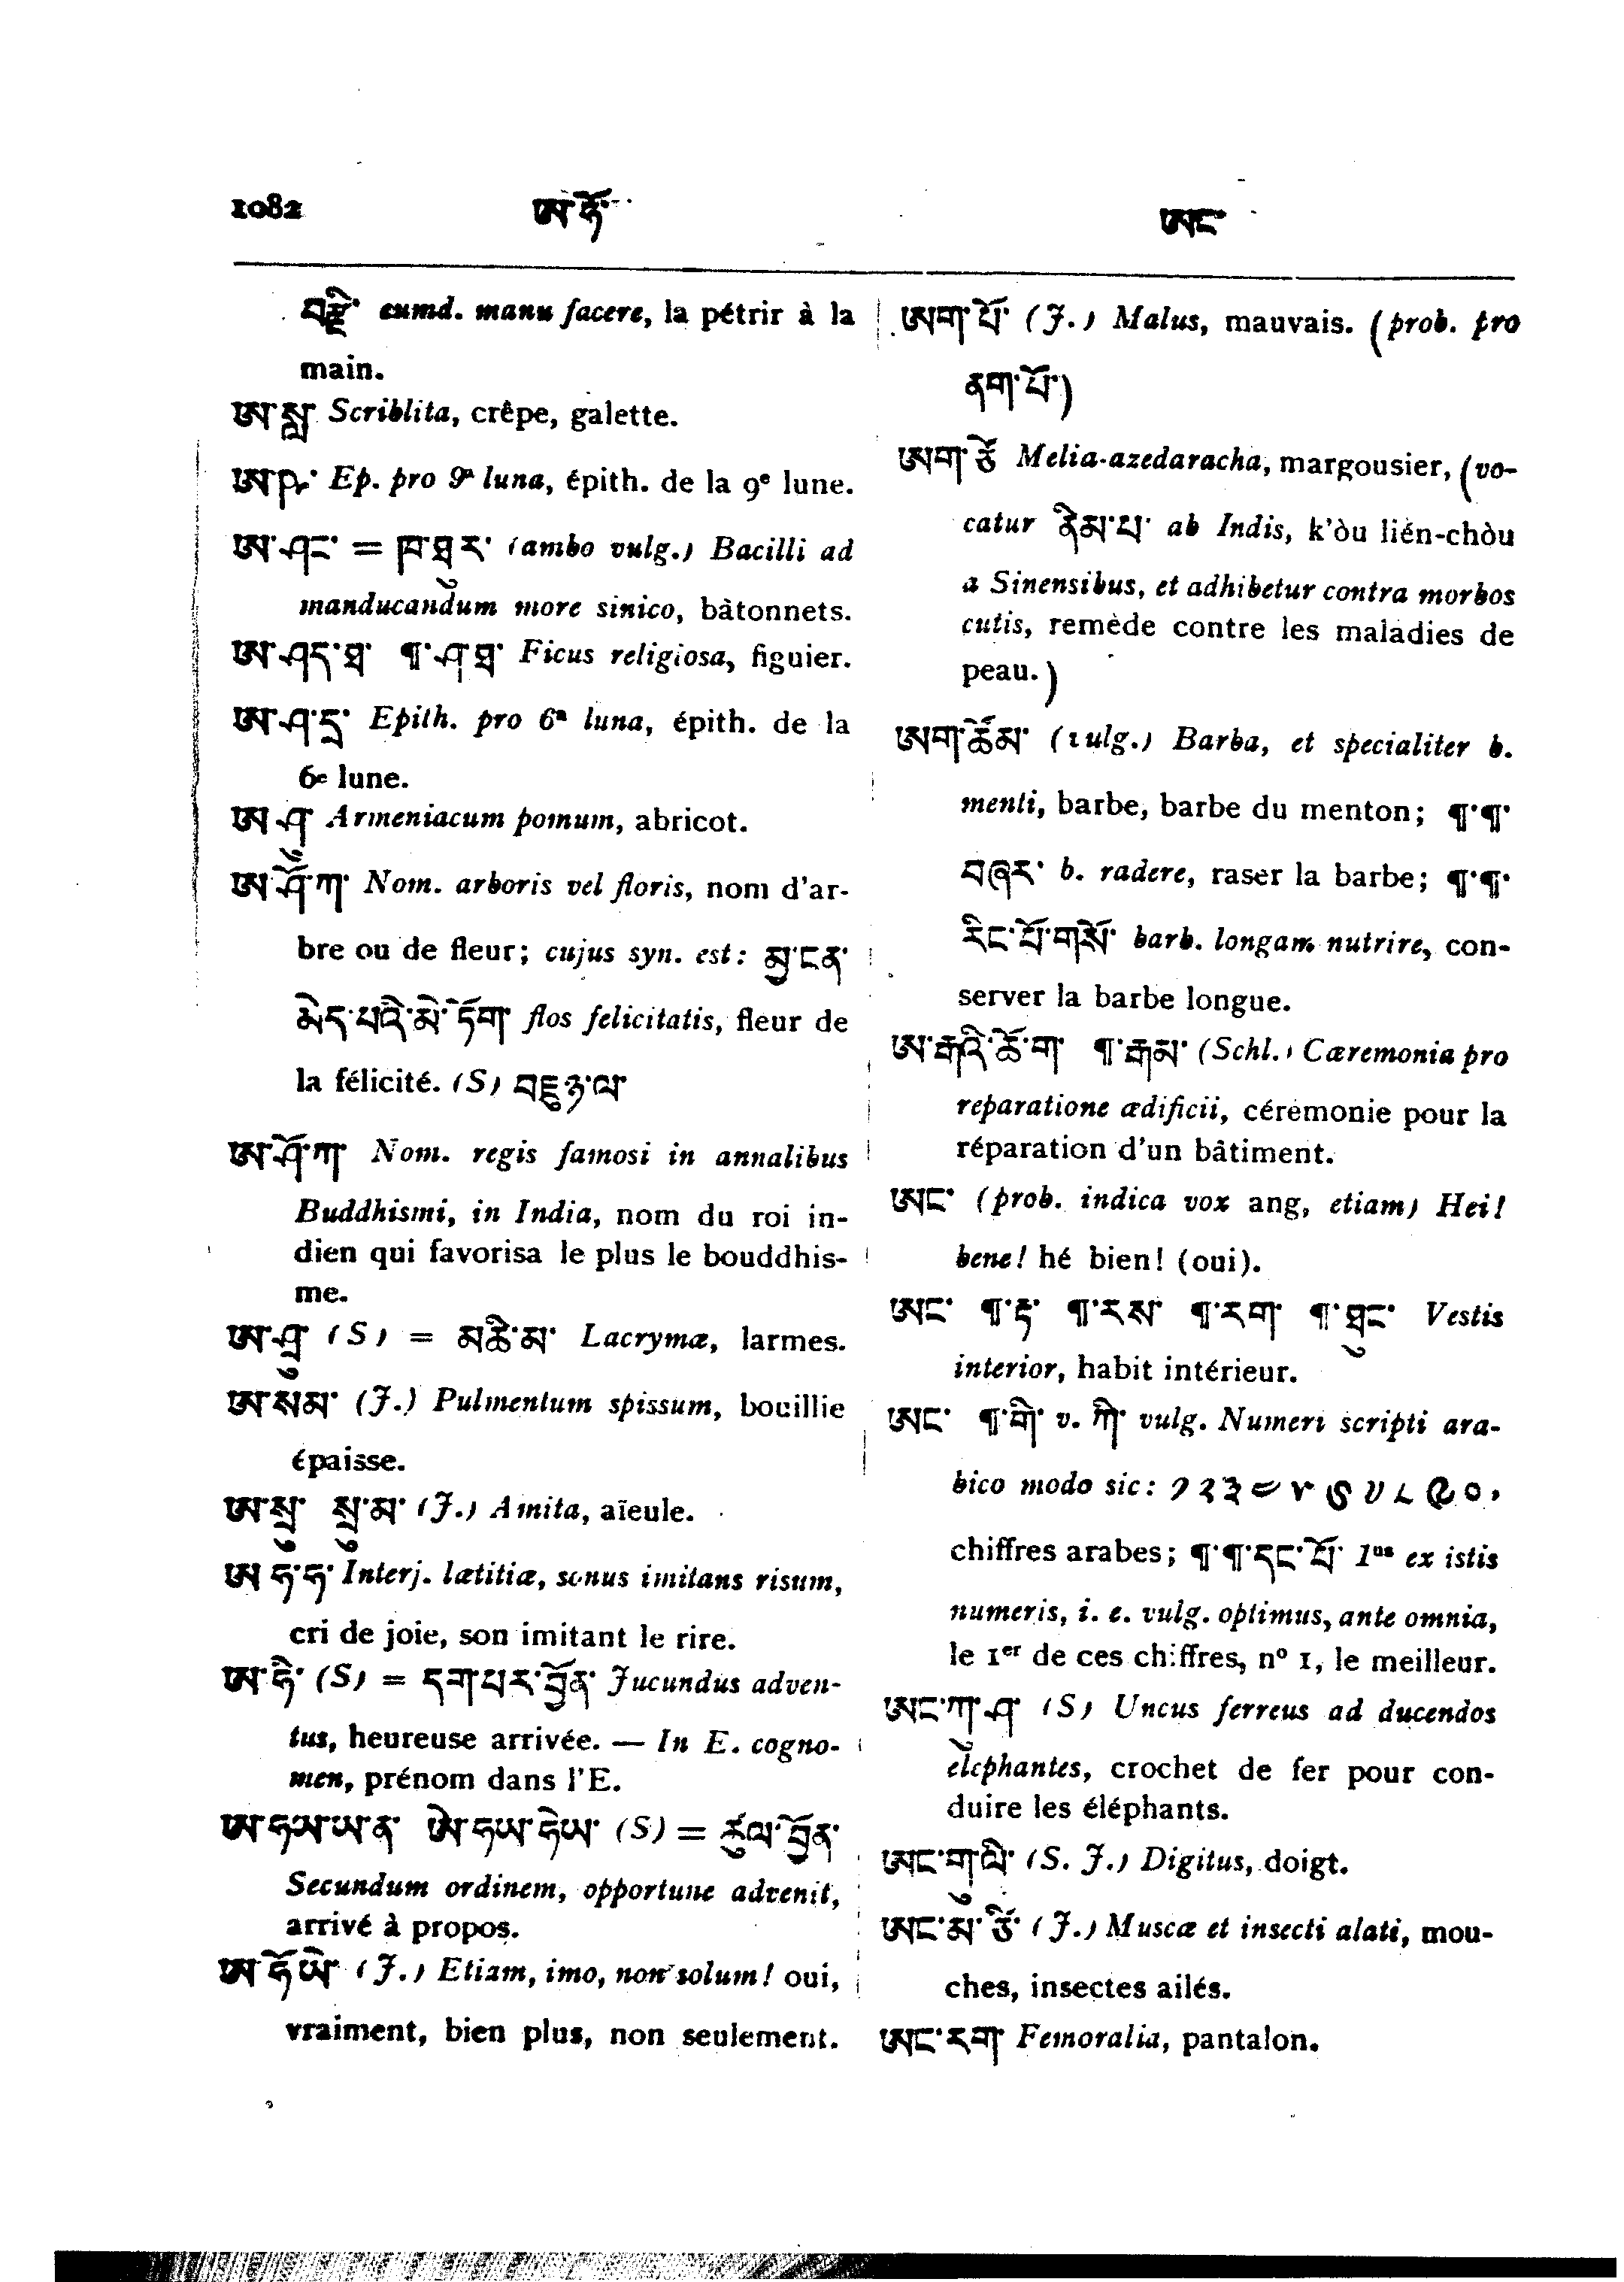 1082 ཨ་ཧོ་ ཨང་
བརྫི་ eumd. manu facere, la pétrir à la
main.
ཨ་ Scriblita, crêpe, galette.
ཨ་ Ep. pro 9ª luna, épith. de la 9e lune.
ཨ་ཤང་ = ཁ་ཐུར་ (ambo vulg.) Bacilli ad
manducandum more sinico, bàtonnets.
ཨ་ཤད་ཐ་ ¶་ཤ་ཐ་ Ficus religiosa, figuier.
ཨ་ཤ་དྲ་ Epith. pro 6ª luna, épith. de la
6e lune.
ཨ་ཤུ་ Armeniacum pomum, abricot.
ཨ་ཤོ་ཀ་ Nom. arboris vel floris, nom d'ar-
bre ou de fleur; cujus syn. est: མྱ་ངན་
མེད་པའི་མེ་ཏོག་ flos felicitatis, fleur de
la félicité. (S)
ཨ་ཤོ་ཀ་ Nom. regis famosi in annalibus
Buddhismi, in India, nom du roi in-
dien qui favorisa le plus le bouddhis-
me.
ཨ་ཤྲུ་ (S) = མཆི་མ་ Lacrymæ, larmes.
ཨ་སམ་ (J.) Pulmentum spissum, bouillie
épaisse.
ཨ་སྲུ་ སྲུ་མ་ (J.) Amita, aïeule.
ཨ་ཧ་ཧ་ Interj. lætitiæ, sonus imitans risum,
cri de joie, son imitant le rire.
ཨ་ཧི་ (S) = དགའ་པར་བྱོན་ Jucundus adven-
tus, heureuse arrivée. — In E. cogno-
men, prénom dans l'E.
ཨ་ཧཡ་ཡ་ན་ ཨེ་ཧཡ་ཧེཡ་ (S) = ཚུལ་བྱོན་
Secundum ordinem, opportune advenit,
arrivé à propos.
ཨ་ཧོ་ཡེ་ (J.) Etiam, imo, non solum! oui,
vraiment, bien plus, non seulement.
ཨག་པོ་ (J.) Malus, mauvais. (prob. pro
ནག་པོ་)
ཨག་ཙེ་ Melia-azedaracha, margousier, (vo-
catur ནིམ་པ་ ab Indis, k'òu lién-chòu
a Sinensibus, et adhibetur contra morbos
cutis, remède contre les maladies de
peau.)
ཨག་ཚོམ་ (vulg.) Barba, et specialiter b.
menti, barbe, barbe du menton; ¶་¶་
བཞར་ b. radere, raser la barbe; ¶་¶་
རིང་པོ་གསོ་ barb. longam nutrire, con-
server la barbe longue.
ཨ་རྒའི་ཆོ་ག་ ¶་རྒམ་ (Schl.) Cæremonia pro
reparatione ædificii, cérémonie pour la
réparation d'un bâtiment.
ཨང་ (prob. indica vox ang, etiam) Hei!
bene! hé bien! (oui).
ཨང་ ¶་རྟ་ ¶་རས་ ¶་རག་ ¶་ཐུང་ Vestis
interior, habit intérieur.
ཨང་ ¶་གི་ v. ཀི་ vulg. Numeri scripti ara-
bico modo sic:
chiffres arabes; ¶་¶་དང་པོ་ 1us ex istis
numeris, i. e. vulg. optimus, ante omnia,
le 1er de ces chiffres, nº 1, le meilleur.
ཨང་ཀུ་ཤ་ (S) Uncus ferreus ad ducendos
elephantes, crochet de fer pour con-
duire les éléphants.
ཨང་གུ་ལི་ (S. J.) Digitus, doigt.
ཨང་མ་ཙི་ (J.) Muscæ et insecti alati, mou-
ches, insectes ailés.
ཨང་རག་ Femoralia, pantalon.